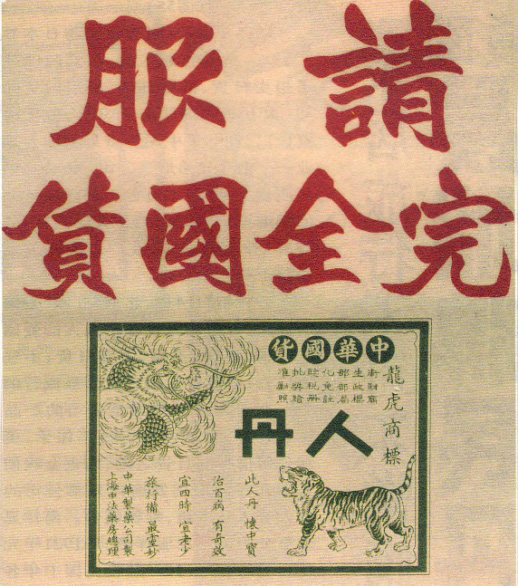 請服
完全國貨
中華國貨
龍虎商標
衛生部化驗批准
財政部免稅獎勵
商標局註冊給照
人丹
此人丹 懷中寶
治百病 有奇效
宜四時 宜老少
旅行備 最靈妙
中華製藥公司製
上海中法藥房總理